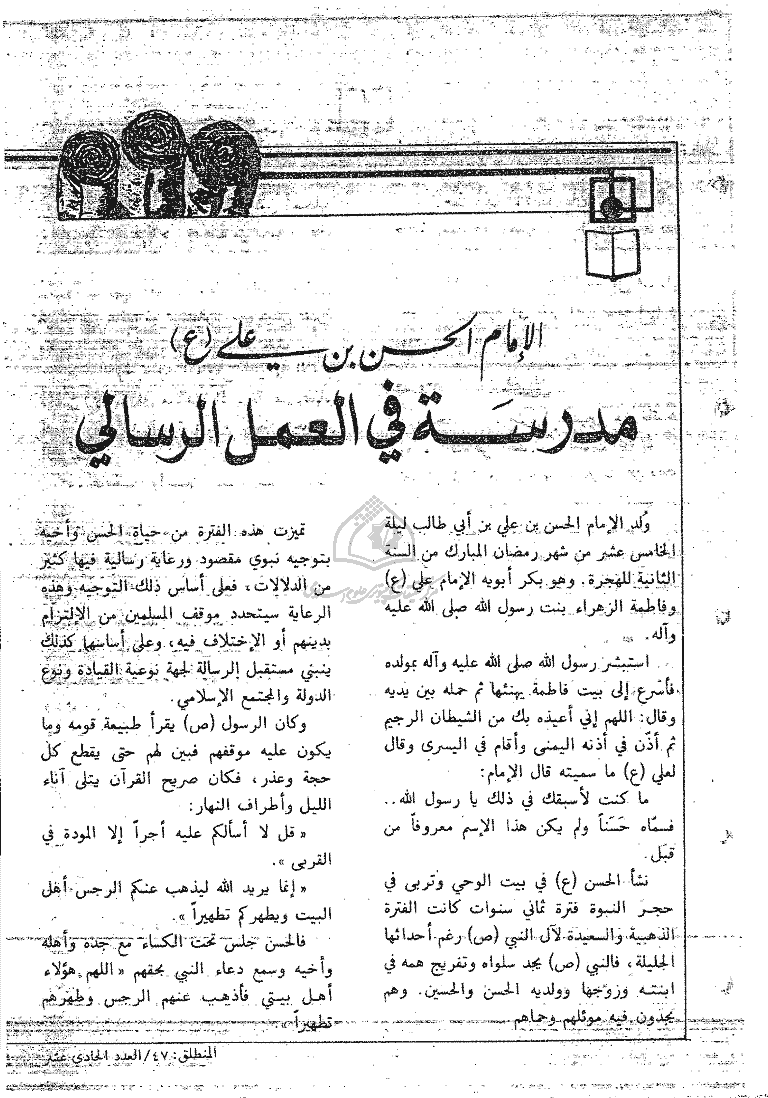 الإمام الحسن بن علي (ع)
مدرسة في العمل الرسالي
وُلد الإمام الحسن بن علي بن أبي طالب ليلة
الخامس عشر من شهر رمضان المبارك من السنة
الثانية للهجرة. وهو بكر أبويه الإمام علي (ع)
وفاطمة الزهراء بنت رسول الله صلى الله عليه
وآله.
استبشر رسول الله صلى الله عليه وآله بمولده
فأسرع إلى بيت فاطمة يهنئها ثم حمله بين يديه
وقال: اللهم إني أعيذه بك من الشيطان الرجيم
ثم أذّن في أذنه اليمنى وأقام في اليسرى وقال
لعلي (ع) ما سميته قال الإمام:
ما كنت لأسبقك في ذلك يا رسول الله..
فسمّاه حَسَناً ولم يكن هذا الإسم معروفاً من
قبل.
نشأ الحسن (ع) في بيت الوحي وتربى في
حجر النبوة فترة ثماني سنوات كانت الفترة
الذهبية والسعيدة لآل النبي (ص) رغم أحداثها
الجليلة، فالنبي (ص) يجد سلواه وتفريج همه في
ابنته وزوجها وولديه الحسن والحسين. وهم
يجدون فيه موئلهم وحماهم
تميزت هذه الفترة من حياة الحسن وأخيه
بتوجيه نبوي مقصود ورعاية رسالية فيها كثير
من الدلالات، فعلى أساس ذلك التوجيه وهذه
الرعاية سيتحدد موقف المسلمين من الإلتزام
بدينهم أو الإختلاف فيه، وعلى أساسهما كذلك
ينبني مستقبل الرسالة لجهة نوعية القيادة ونوع
الدولة والمجتمع الإسلامي.
وكان الرسول (ص) يقرأ طبيعة قومه وما
يكون عليه موقفهم فبين لهم حتى يقطع كل
حجة وعذر، فكان صريح القرآن يتلى آناء
الليل وأطراف النهار:
« قل لا أسألكم عليه أجراً إلا المودة في
القربى ».
« إنما يريد الله ليذهب عنكم الرجس أهل
البيت ويطهركم تطهيراً ».
فالحسن جلس تحت الكساء مع جده وأهله
وأخيه وسمع دعاء النبي بحقهم « اللهم هؤلاء
أهل بيتي فأذهب عنهم الرجس وطهرهم
تطهيراً ».
المنطلق: ٤٧/العدد الحادي عشر